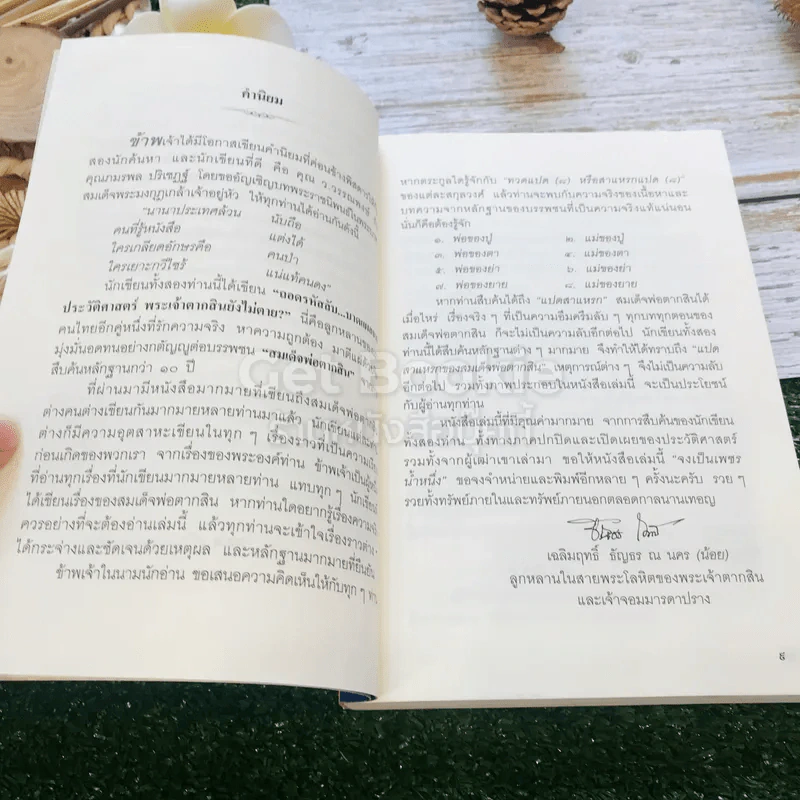 คำนิยม
ข้าพเจ้าได้มีโอกาสเขียนคำนิยมที่ค่อนข้างพิสดารให้
สองนักค้นหา และนักเขียนที่ดี คือ คุณ ว.วรรณพงษ์
คุณภมรพล ปริเชฏฐ์ โดยขออัญเชิญบทพระราชนิพนธ์ใน
สมเด็จพระมงกุฎเกล้าเจ้าอยู่หัว ให้ทุกท่านได้อ่านกันดังนี้
"นานาประเทศล้วน นับถือ
คนที่รู้หนังสือ แต่งได้
ใครเกลียดอักษรคือ คนป่า
ใครเยาะกวีไซร้ แน่แท้คนดง"
นักเขียนทั้งสองท่านนี้ได้เขียน "ถอดรหัสลับ...
ประวัติศาสตร์ พระเจ้าตากสินยังไม่ตาย?" นี่คือลูกหลานของ
คนไทยอีกคู่หนึ่งที่รักความจริง หาความถูกต้อง มาตีแผ่
มุ่งมั่นอดทนอย่างกตัญญูต่อบรรพชน "สมเด็จพ่อตากสิน"
สืบค้นหลักฐานกว่า ๑๐ ปี
ที่ผ่านมามีหนังสือมากมายที่เขียนถึงสมเด็จพ่อตาก
ต่างคนต่างเขียนกันมากมายหลายท่านมาแล้ว นักเขียนแต่ละ
ต่างก็มีความอุตสาหะเขียนในทุก ๆ เรื่องราวที่เป็นความ
ก่อนเกิดของพวกเรา จากเรื่องของพระองค์ท่าน ข้าพเจ้าเป็นผู้หนึ่ง
ที่อ่านทุกเรื่องที่นักเขียนมากมายหลายท่าน แทบทุก ๆ นักเขียน
ได้เขียนเรื่องของสมเด็จพ่อตากสิน หากท่านใดอยากรู้เรื่องความ
ควรอย่างที่จะต้องอ่านเล่มนี้ แล้วทุกท่านจะเข้าใจเรื่องราวต่าง
ได้กระจ่างและชัดเจนด้วยเหตุผล และหลักฐานมากมายที่ยืนยัน
ข้าพเจ้าในนามนักอ่าน ขอเสนอความคิดเห็นให้กับทุก ๆ ท่าน
หากตระกูลใดรู้จักกับ "ทวดแปด (๘) หรือสาแหรกแปด (๘)"
ของแต่ละสกุลวงศ์ แล้วท่านจะพบกับความจริงของเนื้อหาและ
บทความจากหลักฐานของบรรพชนที่เป็นความจริงแท้แน่นอน
นั่นก็คือต้องรู้จัก
๑. พ่อของปู่ ๒. แม่ของปู่
๓. พ่อของตา ๔. แม่ของตา
๕. พ่อของย่า ๖. แม่ของย่า
๗. พ่อของยาย ๘. แม่ของยาย
หากท่านสืบค้นได้ถึง "แปดสาแหรก" สมเด็จพ่อตากสินได้
เมื่อไหร่ เรื่องจริง ๆ ที่เป็นความอึมครึมลับ ๆ ทุกบททุกตอนของ
สมเด็จพ่อตากสิน ก็จะไม่เป็นความลับอีกต่อไป นักเขียนทั้งสอง
ท่านนี้ได้สืบค้นหลักฐานต่าง ๆ มากมาย จึงทำให้ได้ทราบถึง "แปด
สาแหรกของสมเด็จพ่อตากสิน" เหตุการณ์ต่าง ๆ จึงไม่เป็นความลับ
อีกต่อไป รวมทั้งภาพประกอบในหนังสือเล่มนี้ จะเป็นประโยชน์
กับผู้อ่านทุกท่าน
หนังสือเล่มนี้ที่มีคุณค่ามากมาย จากการสืบค้นของนักเขียน
ทั้งสองท่าน ทั้งทางภาคปกปิดและเปิดเผยของประวัติศาสตร์
รวมทั้งจากผู้เฒ่าเขาเล่ามา ขอให้หนังสือเล่มนี้ "จงเป็นเพชร
น้ำหนึ่ง" ขอจงจำหน่ายและพิมพ์อีกหลาย ๆ ครั้งนะครับ รวย ๆ
รวยทั้งทรัพย์ภายในและทรัพย์ภายนอกตลอดกาลนานเทอญ
เฉลิมฤทธิ์ ธัญธร ณ นคร (น้อย)
ลูกหลานในสายพระโลหิตของพระเจ้าตากสิน
และเจ้าจอมมารดาปราง
๕
Get Bookie